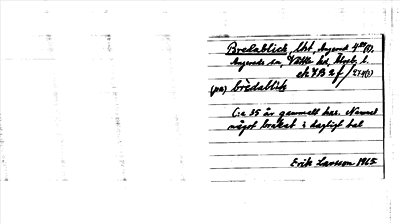 Bredablick, lht, Angered 4
Angereds sn, Vättle hd, Älvsb. l.
ek 7B 2f / 274(1)
(på) brèdablik
C:a 35 år gammalt hus. Namnet
något brukat i dagligt tal
Erik Larsson 1965